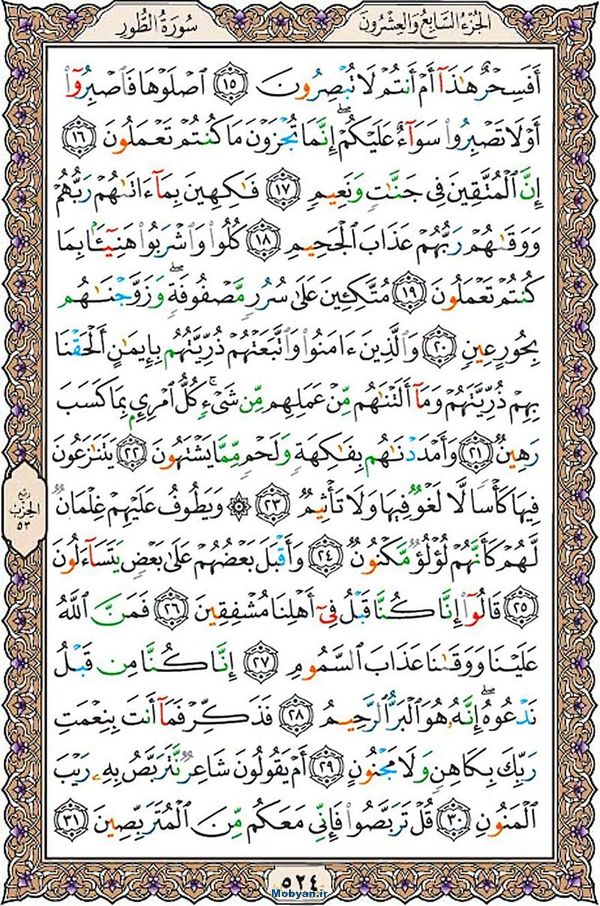 الجُزءُ السَّابِعُ وَالعِشْرُونَ
سُورَةُ الطُّورِ
أَفَسِحْرٌ هَٰذَآ أَمْ أَنتُمْ لَا تُبْصِرُونَ ١٥ ٱصْلَوْهَا فَٱصْبِرُوٓا۟
أَوْ لَا تَصْبِرُوا۟ سَوَآءٌ عَلَيْكُمْ ۖ إِنَّمَا تُجْزَوْنَ مَا كُنتُمْ تَعْمَلُونَ ١٦
إِنَّ ٱلْمُتَّقِينَ فِى جَنَّـٰتٍ وَنَعِيمٍ ١٧ فَـٰكِهِينَ بِمَآ ءَاتَىٰهُمْ رَبُّهُمْ
وَوَقَىٰهُمْ رَبُّهُمْ عَذَابَ ٱلْجَحِيمِ ١٨ كُلُوا۟ وَٱشْرَبُوا۟ هَنِيٓـًٔۢا بِمَا
كُنتُمْ تَعْمَلُونَ ١٩ مُتَّكِـِٔينَ عَلَىٰ سُرُرٍ مَّصْفُوفَةٍ ۖ وَزَوَّجْنَـٰهُم
بِحُورٍ عِينٍ ٢٠ وَٱلَّذِينَ ءَامَنُوا۟ وَٱتَّبَعَتْهُمْ ذُرِّيَّتُهُم بِإِيمَـٰنٍ أَلْحَقْنَا
بِهِمْ ذُرِّيَّتَهُمْ وَمَآ أَلَتْنَـٰهُم مِّنْ عَمَلِهِم مِّن شَىْءٍ ۚ كُلُّ ٱمْرِئٍۭ بِمَا كَسَبَ
رَهِينٌ ٢١ وَأَمْدَدْنَـٰهُم بِفَـٰكِهَةٍ وَلَحْمٍ مِّمَّا يَشْتَهُونَ ٢٢ يَتَنَـٰزَعُونَ
فِيهَا كَأْسًا لَّا لَغْوٌ فِيهَا وَلَا تَأْثِيمٌ ٢٣ ۞ وَيَطُوفُ عَلَيْهِمْ غِلْمَانٌ
لَّهُمْ كَأَنَّهُمْ لُؤْلُؤٌ مَّكْنُونٌ ٢٤ وَأَقْبَلَ بَعْضُهُمْ عَلَىٰ بَعْضٍ يَتَسَآءَلُونَ
٢٥ قَالُوٓا۟ إِنَّا كُنَّا قَبْلُ فِىٓ أَهْلِنَا مُشْفِقِينَ ٢٦ فَمَنَّ ٱللَّهُ
عَلَيْنَا وَوَقَىٰنَا عَذَابَ ٱلسَّمُومِ ٢٧ إِنَّا كُنَّا مِن قَبْلُ
نَدْعُوهُ ۖ إِنَّهُۥ هُوَ ٱلْبَرُّ ٱلرَّحِيمُ ٢٨ فَذَكِّرْ فَمَآ أَنتَ بِنِعْمَتِ
رَبِّكَ بِكَاهِنٍ وَلَا مَجْنُونٍ ٢٩ أَمْ يَقُولُونَ شَاعِرٌ نَّتَرَبَّصُ بِهِۦ رَيْبَ
ٱلْمَنُونِ ٣٠ قُلْ تَرَبَّصُوا۟ فَإِنِّى مَعَكُم مِّنَ ٱلْمُتَرَبِّصِينَ ٣١
ربع
الحزب
٥٣
٥٢٤
Mobyan.ir